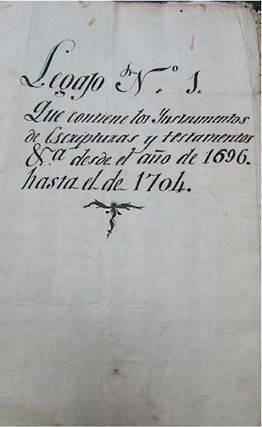 Legajo N.º 1.
Que contiene los Ynstrumentos
de Escripturas y testamentos
&.ª desde el año de 1696.
hasta el de 1704.